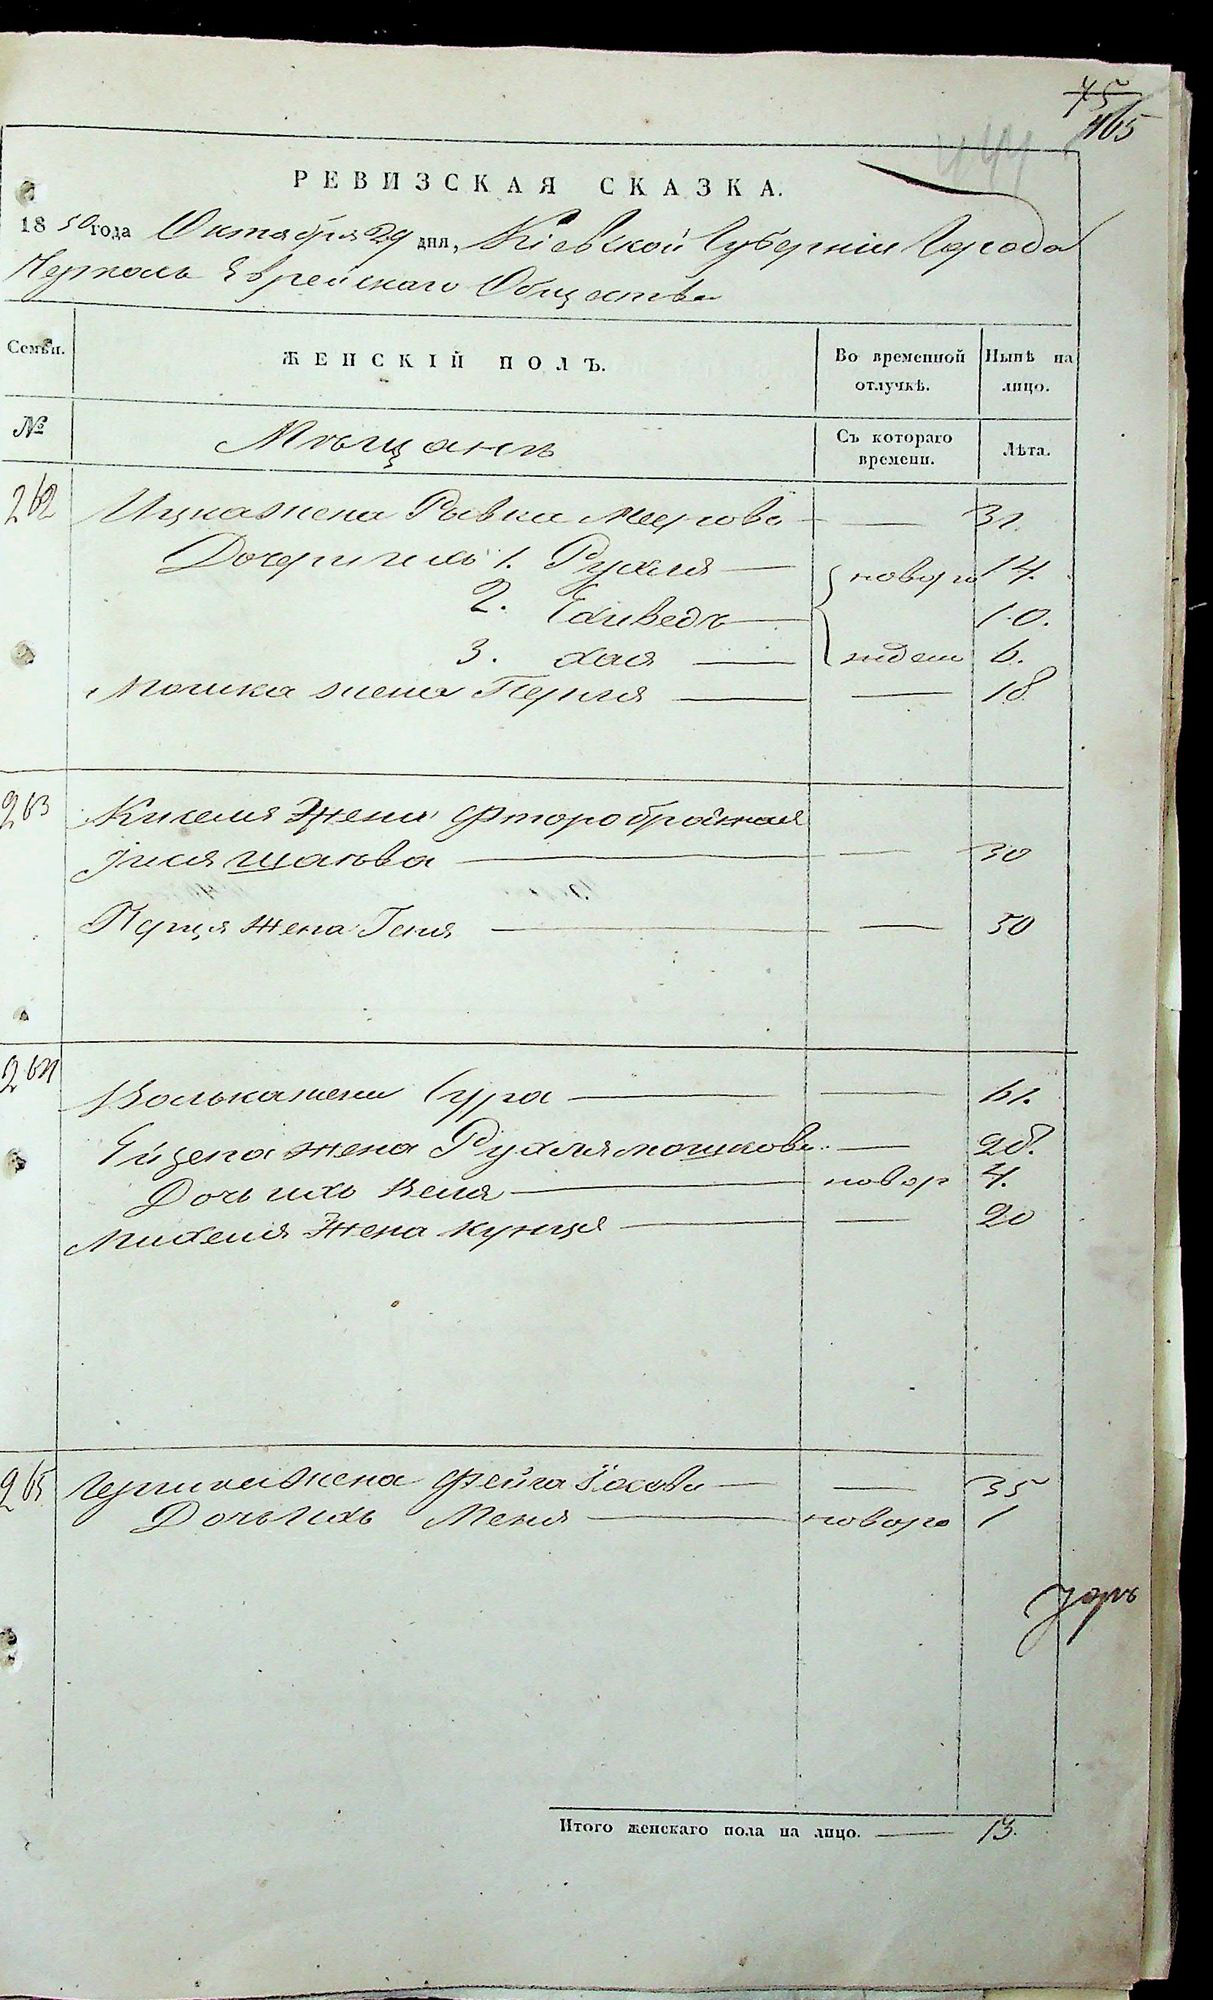 75
465
444
РЕВИЗСКАЯ СКАЗКА.
1850 года Октября 29 дня, Кіевской Губерніи Города
Еврейскаго Общества
Семьи. ЖЕНСКІЙ ПОЛЪ. Во временной отлучкѣ. Нынѣ на лицо.
№ Мѣщанъ Съ котораго времени. Лѣта.
262 Ицка жена Рывка Меерова — — 31.
Дочери ихъ 1. Рухля — новоро 14.
2. Хаиведъ — 10.
3. хая — 6.
Мошка жена Перля — — 18
263 Киселя Жена фторобрачная
— — 30
Герця Жена Геня — — 30
264 Волька жена Сура — — 61.
Ейзера жена Рухля мошкова — 28.
Дочь ихъ Бейля — новор 4.
Михеля Жена кунця — — 20
265 Гершка жена Фейга — — 35
Дочь ихъ Меня — новоро 1
Итого женскаго пола на лицо. — 13.